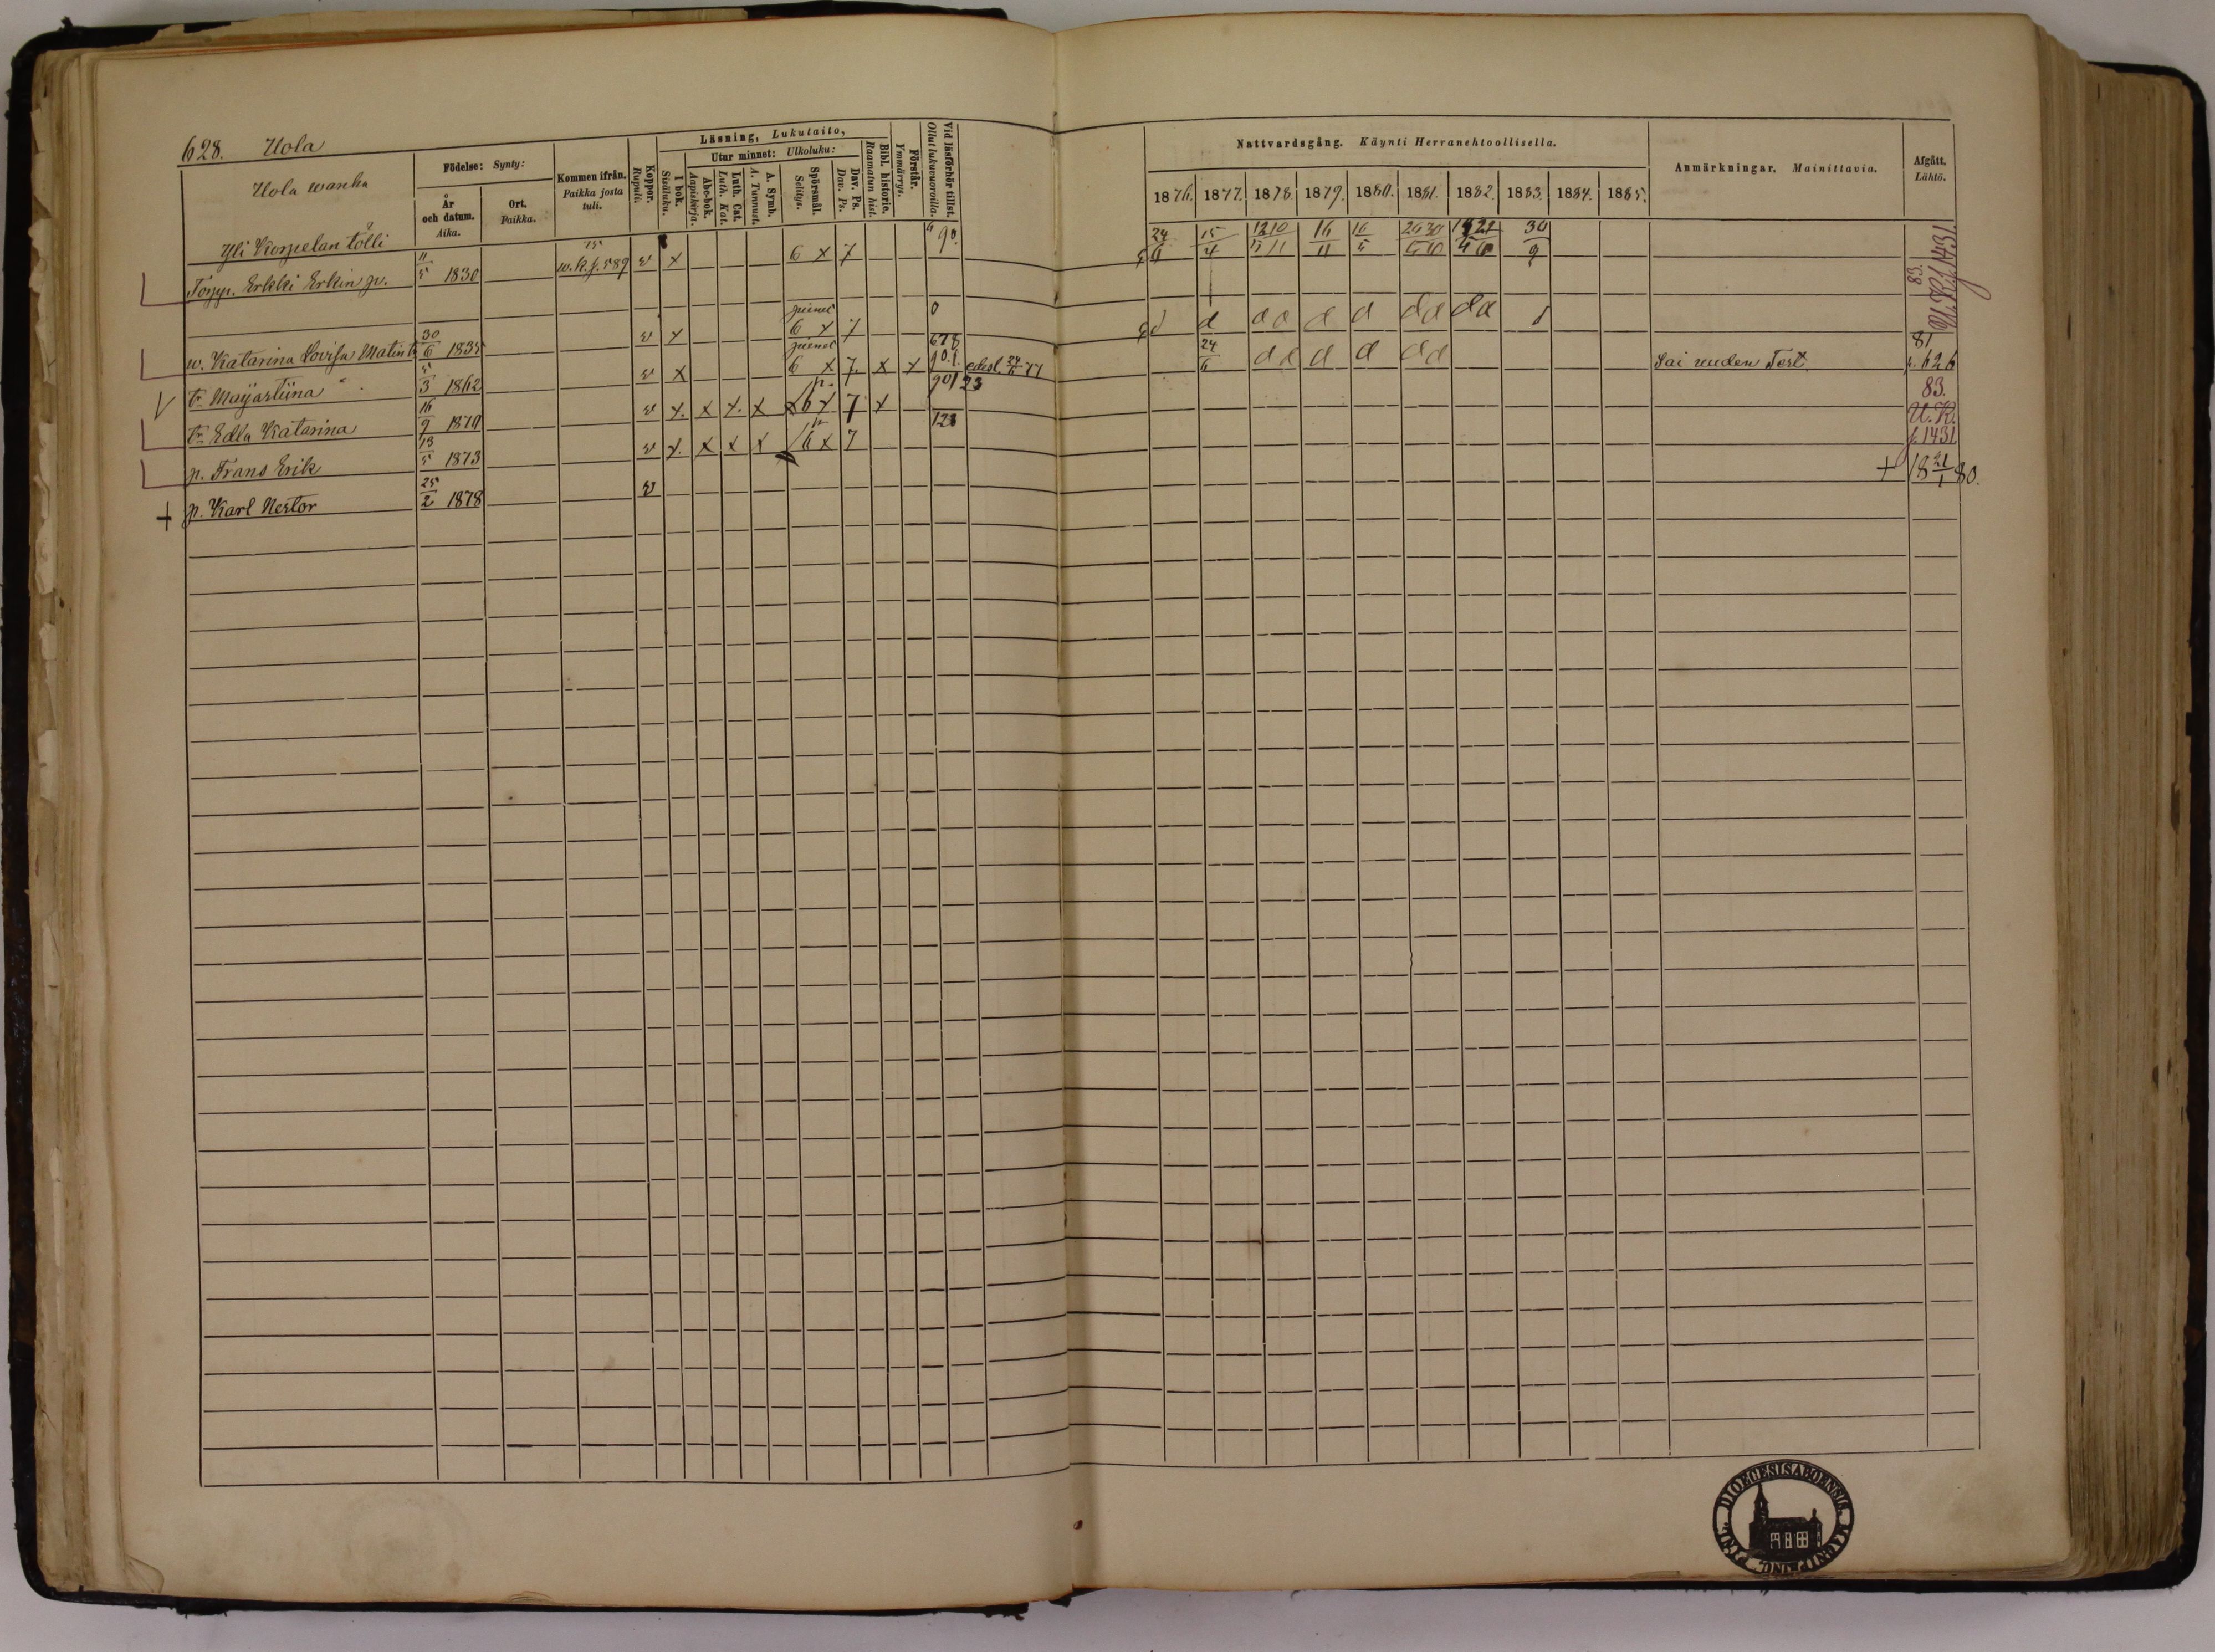 628. Uola
Uola wanha
Födelse: Synty:
År och datum. Aika.
Ort. Paikka.
Kommen ifrån. Paikka josta tuli.
Koppor. Rupuli.
Läsning, Lukutaito,
I bok. Sisäluku.
Utur minnet: Ulkoluku:
Abc-bok. Aapiskirja.
Luth. Cat. Luth. Kat.
A. Symb. A. Tunnust.
Spörsmål. Selitys.
Dav. Ps. Dav. Ps.
Bibl. historie. Raamatun hist.
Förstår. Ymmärrys.
Vid läsförhör tillst. Ollut lukuvuoroilla.
Nattvardsgång. Käynti Herranehtoollisella.
1876. 1877. 1878. 1879. 1880. 1881. 1882. 1883. 1884. 1885.
Anmärkningar. Mainittavia.
Afgått. Lähtö.
Yli Korpelan tölli
Torpp. Erkki Erkin p. 11/5 1830 75 w.K.s. 589 w x 6 x 7 90. 24/6 15/4 12/5 10/11 16/11 16/5 30/9 83. U.K.s. 1431
w. Katarina Lovisa Matint. 30/6 1835 w x 6 x 7 0 d d d d d d d d d d
tr. Maijastiina 5/3 1862 w x 6 x 7. x x 678 90.1. edesl. 24/6 77 24/6 d d d d d d Sai uuden Test. 81 s. 626
tr. Edla Katarina 16/9 1870 w x. x x. x x 6 x 7 x 901 23 83. U.K. s. 1431
p. Frans Erik 13/5 1873 w x. x x x 6 x 7 123
+ p. Karl Nestor 25/2 1878 w + 18 21/1 80.
DIOECESIS ABOENSIS